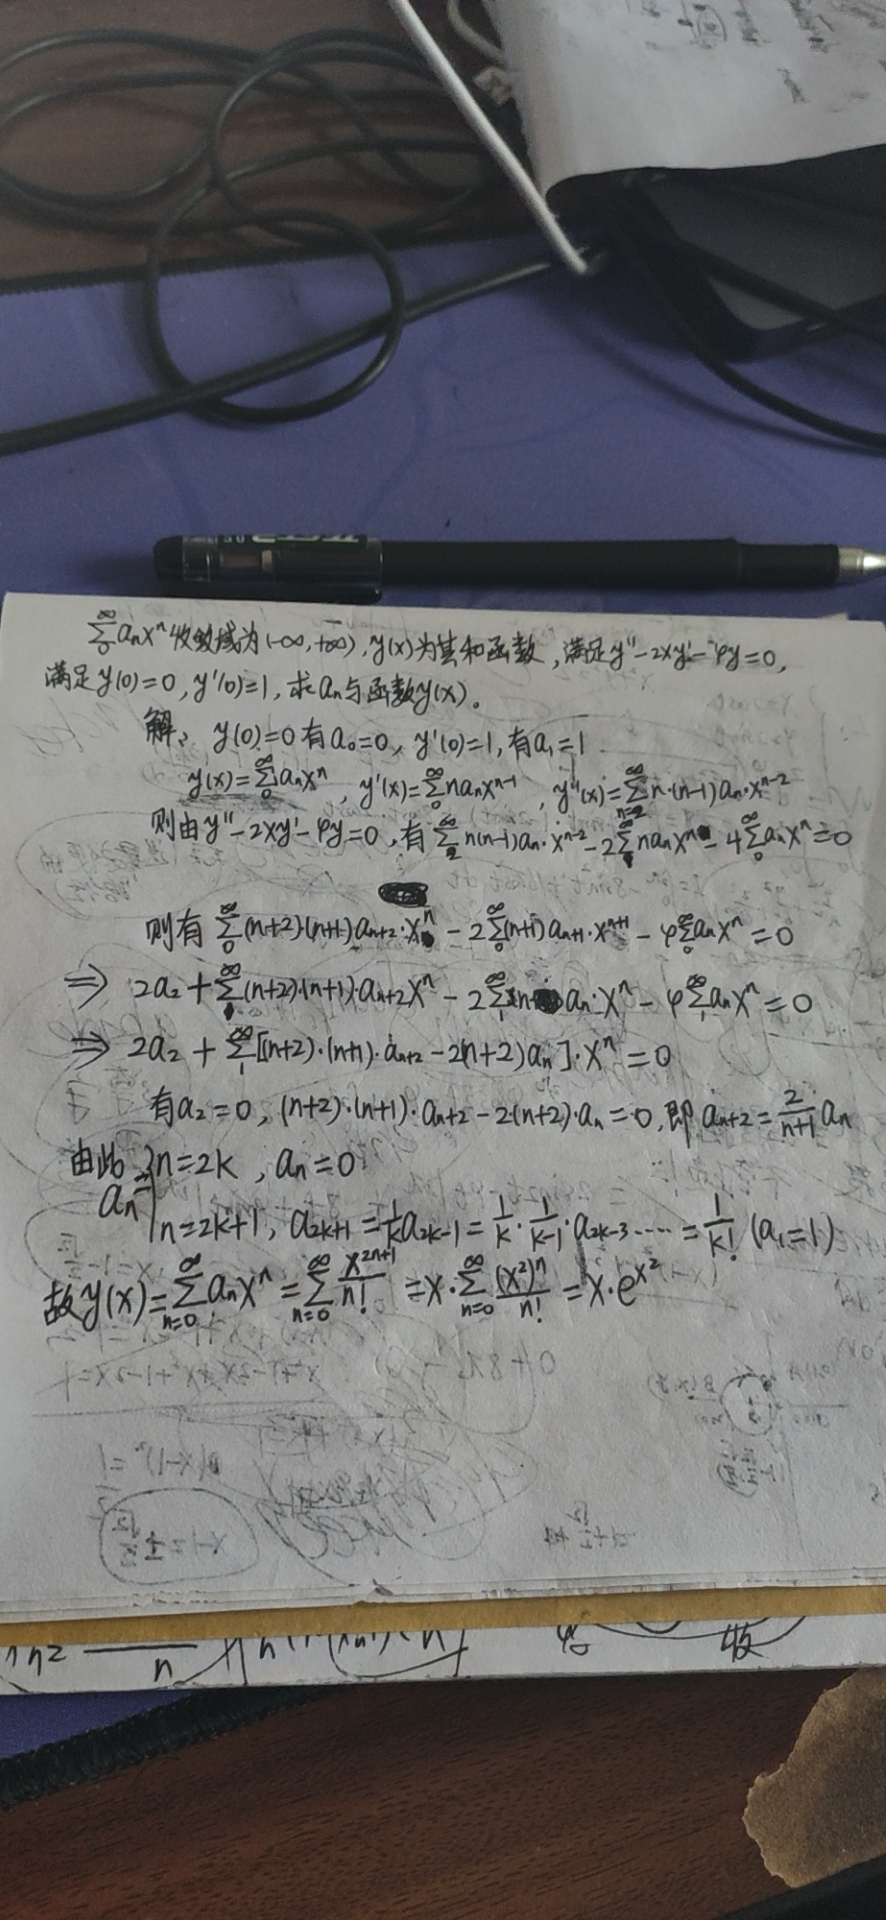 ∑₀^∞ aₙxⁿ收敛域为(-∞,+∞), y(x)为其和函数, 满足y''-2xy'-4y=0,
满足y(0)=0, y'(0)=1, 求aₙ与函数y(x)。
解: y(0)=0有a₀=0, y'(0)=1, 有a₁=1
y(x)=∑₀^∞ aₙxⁿ, y'(x)=∑₀^∞ naₙxⁿ⁻¹, y''(x)=∑ₙ₌₂^∞ n·(n-1)aₙ·xⁿ⁻²
则由y''-2xy'-4y=0, 有∑₂^∞ n(n-1)aₙ·xⁿ⁻²-2∑₁^∞ naₙxⁿ-4∑₀^∞ aₙxⁿ=0
则有∑₀^∞ (n+2)·(n+1)aₙ₊₂·xⁿ-2∑₀^∞ (n+1)aₙ₊₁·xⁿ⁺¹-4∑₀^∞ aₙxⁿ=0
⇒ 2a₂+∑₁^∞ (n+2)·(n+1)·aₙ₊₂xⁿ-2∑₁^∞ n aₙ·xⁿ-4∑₁^∞ aₙxⁿ=0
⇒ 2a₂+∑₁^∞ [(n+2)·(n+1)·aₙ₊₂-2(n+2)aₙ]·xⁿ=0
有a₂=0, (n+2)·(n+1)·aₙ₊₂-2(n+2)·aₙ=0, 即aₙ₊₂=2/(n+1) aₙ
由此 n=2k, aₙ=0
aₙ= n=2k+1, a₂ₖ₊₁=1/k a₂ₖ₋₁=1/k·1/(k-1)·a₂ₖ₋₃……=1/k! (a₁=1)
故y(x)=∑ₙ₌₀^∞ aₙxⁿ=∑ₙ₌₀^∞ x²ⁿ⁺¹/n!=x·∑ₙ₌₀^∞ (x²)ⁿ/n!=x·e^(x²)